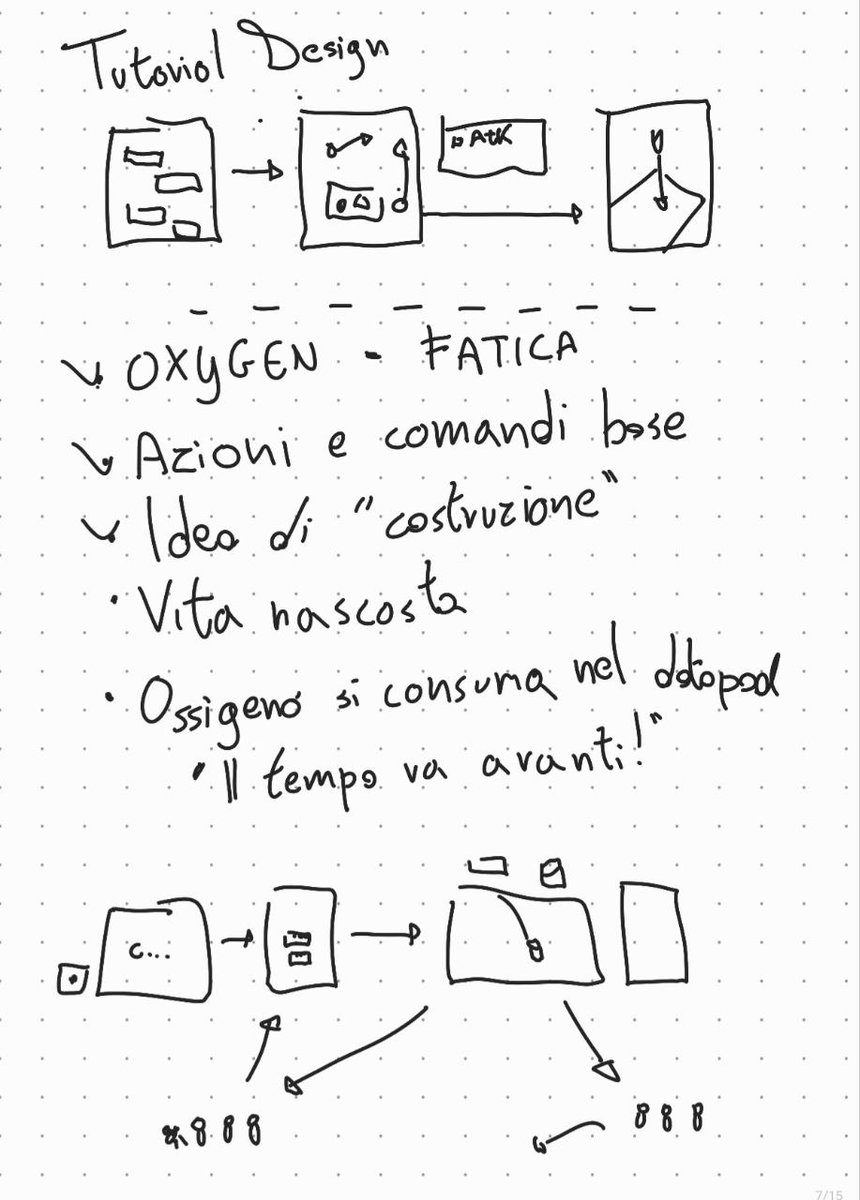 Tutorial Design
AtK
OXYGEN - FATICA
Azioni e comandi base
Idea di "costruzione"
• Vita nascosta
• Ossigeno si consuma nel datapad
"Il tempo va avanti!"
C...
888
888
7/15